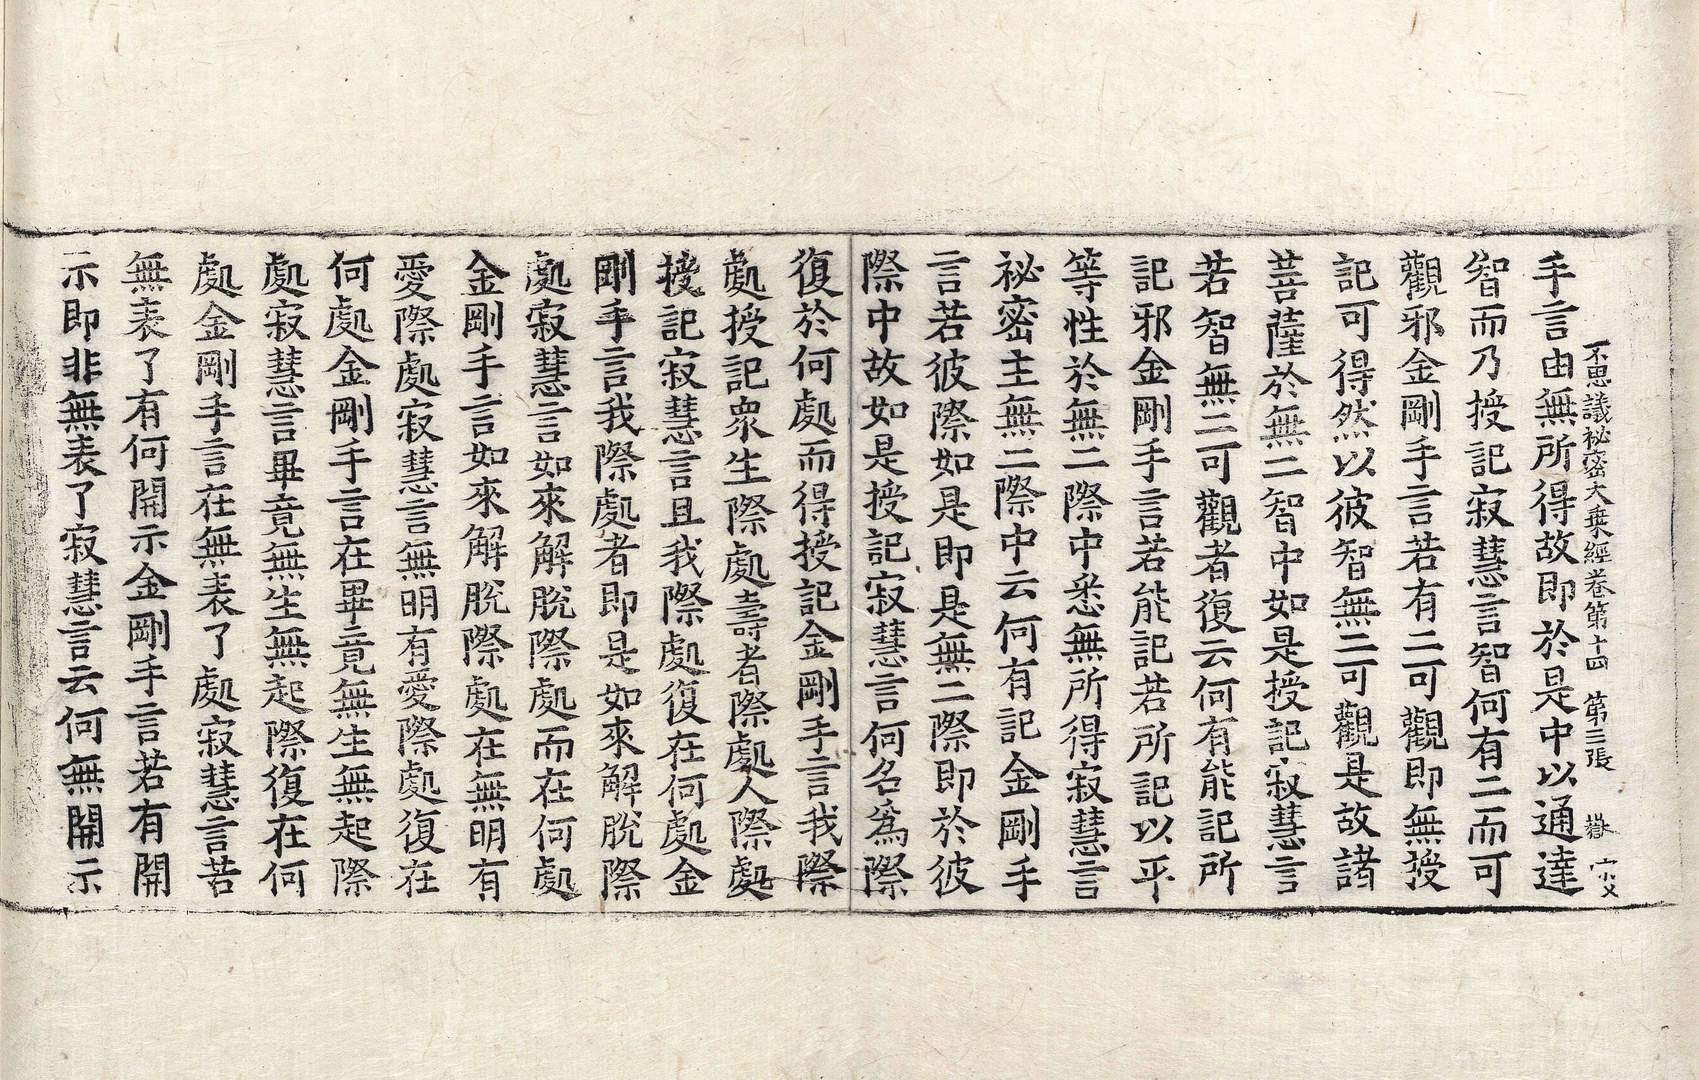 不思議祕密大乗經卷第十四 第三張 嶽
手言由無所得故即於是中以通達
智而乃授記寂慧言智何有二而可
觀邪金剛手言若有二可觀即無授
記可得然以彼智無二可觀是故諸
菩薩於無二智中如是授記寂慧言
若智無二可觀者復云何有能記所
記邪金剛手言若能記若所記以平
等性於無二際中悉無所得寂慧言
祕密主無二際中云何有記金剛手
言若彼際如是即是無二際即於彼
際中故如是授記寂慧言何名爲際
復於何處而得授記金剛手言我際
處授記衆生際處壽者際處人際處
授記寂慧言且我際處復在何處金
剛手言我際處者即是如來解脫際
處寂慧言如來解脫際處而在何處
金剛手言如來解脫際處在無明有
愛際處寂慧言無明有愛際處復在
何處金剛手言在畢竟無生無起際
處寂慧言畢竟無生無起際復在何
處金剛手言在無表了處寂慧言若
無表了有何開示金剛手言若有開
示即非無表了寂慧言云何無開示